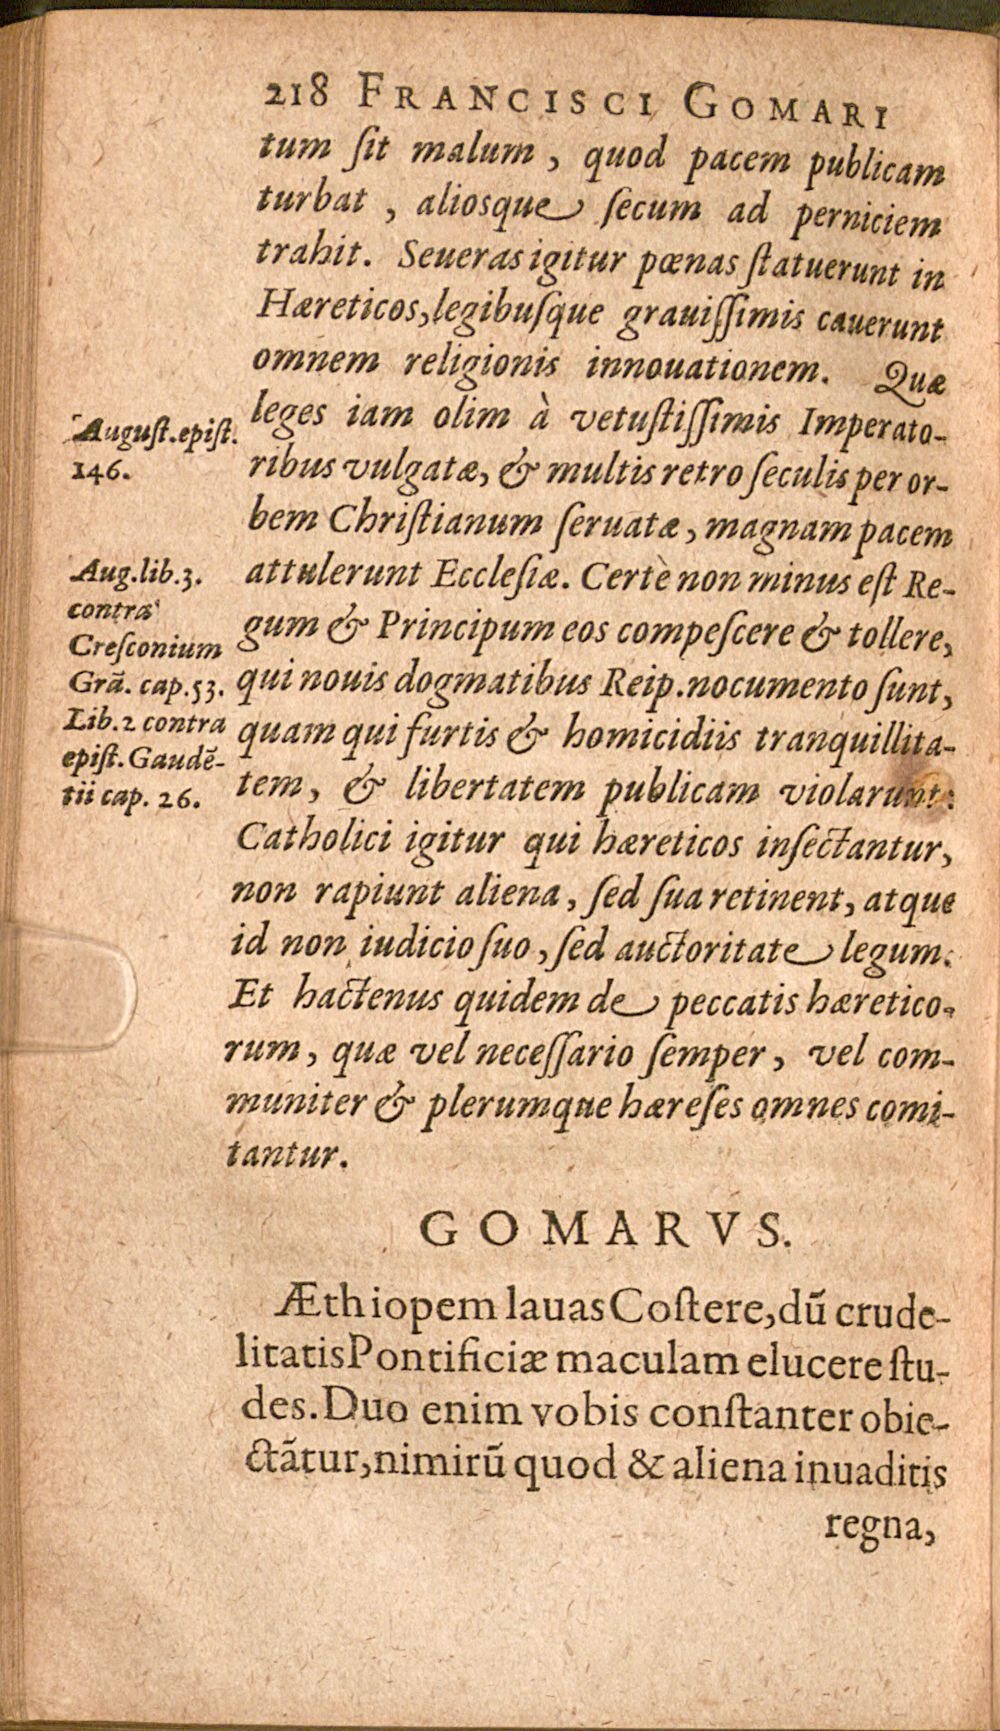 218 FRANCISCI GOMARI
tum ſit malum, quod pacem publicam
turbat, aliosque ſecum ad perniciem
trahit. Seueras igitur pœnas ſtatuerunt in
Hæreticos, legibuſque grauiſſimis cauerunt
omnem religionis innouationem. Quæ
leges iam olim à vetuſtiſſimis Imperato-
ribus vulgatæ, & multis retro ſeculis per or-
bem Chriſtianum ſeruatæ, magnam pacem
attulerunt Eccleſiæ. Certè non minus eſt Re-
gum & Principum eos compeſcere & tollere,
qui nouis dogmatibus Reip. nocumento ſunt,
quam qui furtis & homicidiis tranquillita-
tem, & libertatem publicam violarunt.
Catholici igitur qui hæreticos inſectantur,
non rapiunt aliena, ſed ſua retinent, atque
id non iudicio ſuo, ſed auctoritate legum.
Et hactenus quidem de peccatis hæretico-
rum, quæ vel neceſſario ſemper, vel com-
muniter & plerumque hæreſes omnes comi-
tantur.
Auguſt. epiſt.
146.
Aug. lib. 3.
contra
Creſconium
Grā. cap. 53.
Lib. 2 contra
epiſt. Gaudē-
tii cap. 26.
GOMARVS.
Æthiopem lauas Coſtere, dū crude-
litatis Pontificiæ maculam elucere ſtu-
des. Duo enim vobis conſtanter obie-
ctātur, nimirū quod & aliena inuaditis
regna,